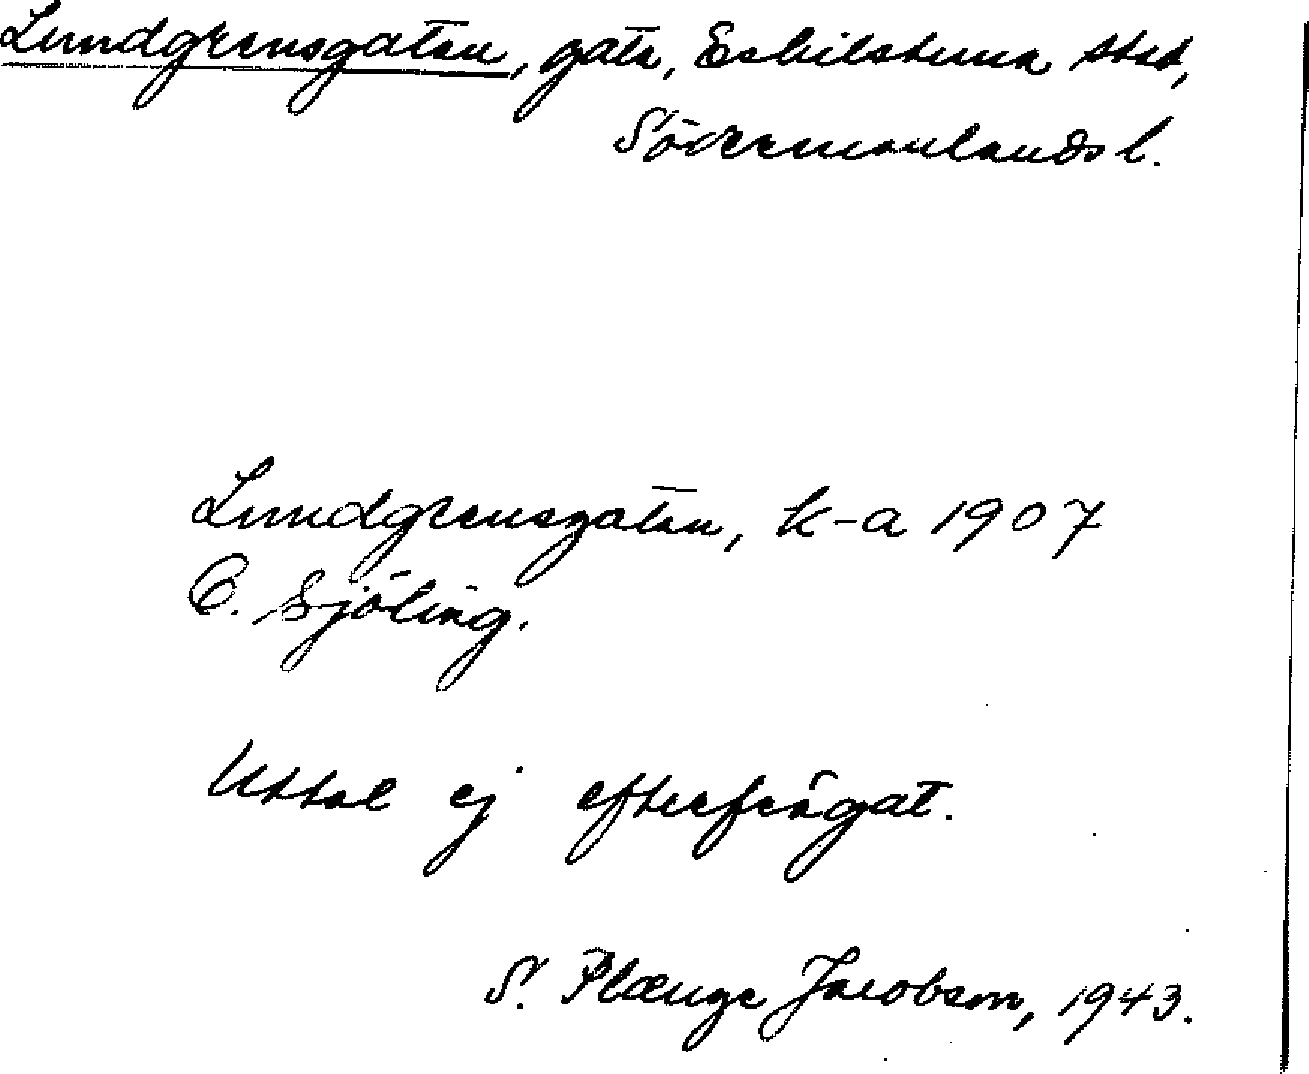 Lundgrensgatan, gata, Eskilstuna stad,
Södermanlands l.
Lundgrensgatan, k-a 1907
C. Sjöling.
Uttal ej efterfrågat.
S. Plænge Jacobson, 1943.